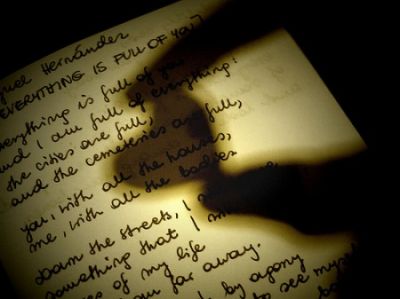 guel Hernández
EVERYTHING IS FULL OF YOU
verything is full of you
nd I am full of everything:
the cities are full,
and the cemeteries are full,
you, with all the houses,
me, with all the bodies
Down the streets, I
something that I
es of my life
far away.
by agony
to see mys